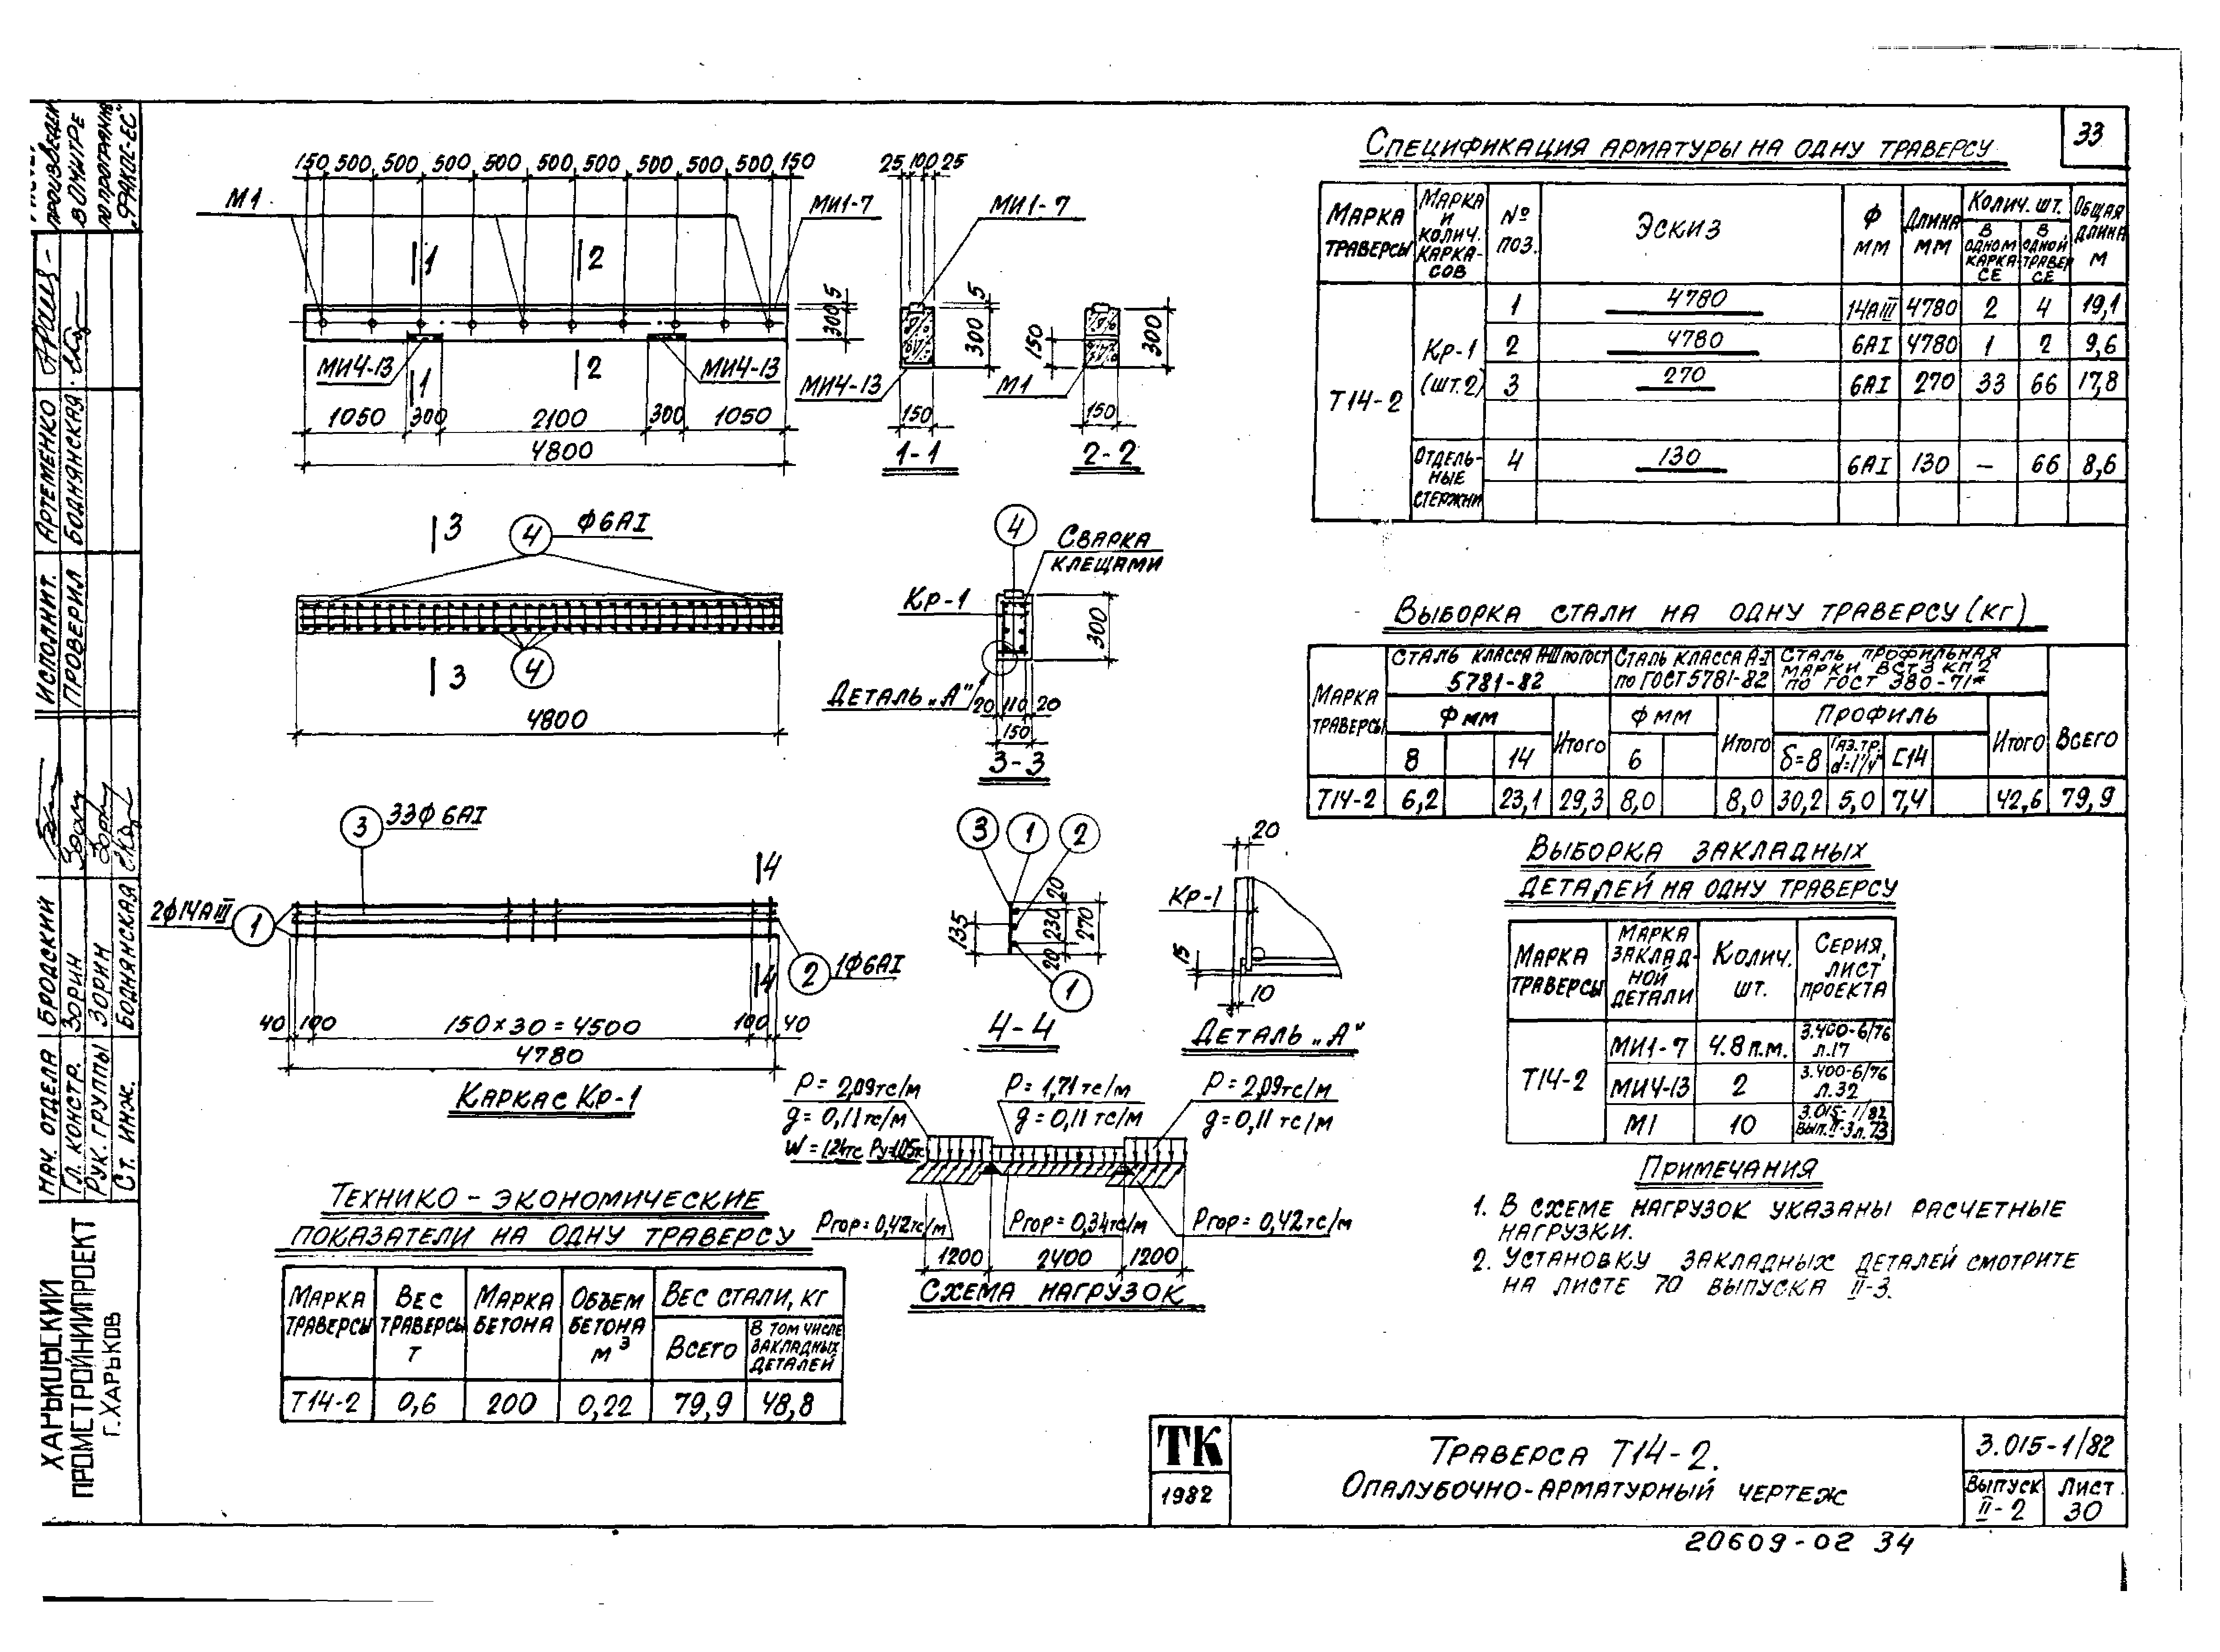 33
150 500 500 500 500 500 500 500 500 500 150
М1
МИ1-7
1
2
5
300
МИ4-13
МИ4-13
1
2
1050 300 2100 300 1050
4800
25 100 25
МИ1-7
5
300
150
300
МИ4-13
М1
150
150
1-1
2-2
3
4
Ф6АI
4
3
4800
4
Сварка
клещами
Кр-1
300
Деталь „А"
20 110 20
150
3-3
3
33Ф6АI
4
2Ф14АIII
1
2
1Ф6АI
4
40 100 150х30=4500 100 40
4780
Каркас Кр-1
3 1 2
135
20
230
270
20
1
4-4
20
Кр-1
15
10
Деталь „А"
Р=2,09тс/м
g=0,11тс/м
Р=1,71тс/м
g=0,11тс/м
Р=2,09тс/м
g=0,11тс/м
Ргор=0,42тс/м
Ргор=0,34тс/м
Ргор=0,42тс/м
1200 2400 1200
Схема нагрузок
Технико-экономические
показатели на одну траверсу
Марка траверсы
Вес траверсы т
Марка бетона
Объем бетона м3
Вес стали, кг
Всего
В том числе закладных деталей
Т14-2 0,6 200 0,22 79,9 48,8
Спецификация арматуры на одну траверсу
Марка траверсы
Марка и колич. каркасов
№ поз.
Эскиз
Ф мм
Длина мм
Колич. шт.
В одном каркасе
В одной траверсе
Общая длина м
Т14-2
Кр-1 (шт.2)
1 4780 14АIII 4780 2 4 19,1
2 4780 6АI 4780 1 2 9,6
3 270 6АI 270 33 66 17,8
Отдельные стержни
4 130 6АI 130 – 66 8,6
Выборка стали на одну траверсу (кг)
Марка траверсы
Сталь класса А-III по ГОСТ 5781-82
Сталь класса А-I по ГОСТ 5781-82
Сталь профильная марки ВСт3 кп2 по ГОСТ 380-71*
Всего
Ф мм
Итого
Ф мм
Итого
Профиль
Итого
8 14 6 δ=8 Газ.тр. d=1¼" [14
Т14-2 6,2 23,1 29,3 8,0 8,0 30,2 5,0 7,4 42,6 79,9
Выборка закладных
деталей на одну траверсу
Марка траверсы
Марка закладной детали
Колич. шт.
Серия, лист проекта
Т14-2
МИ1-7 4.8 п.м. 3.400-6/76 л.17
МИ4-13 2 3.400-6/76 л.32
М1 10 3.015-1/82 вып. II-3 л.73
Примечания
1. В схеме нагрузок указаны расчетные
нагрузки.
2. Установку закладных деталей смотрите
на листе 70 выпуска II-3.
ТК
1982
Траверса Т14-2.
Опалубочно-арматурный чертеж
3.015-1/82
Выпуск
II-2
Лист
30
20609-02 34
произведен
в ОМИТРе
по программе
„РАПС-ЕС"
Исполнит. Артеменко
Проверил Боднянская
Нач. отдела Бродский
Гл. констр. Зорин
Рук. группы Зорин
Ст. инж. Боднянская
Харьковский
Прометройниипроект
г. Харьков